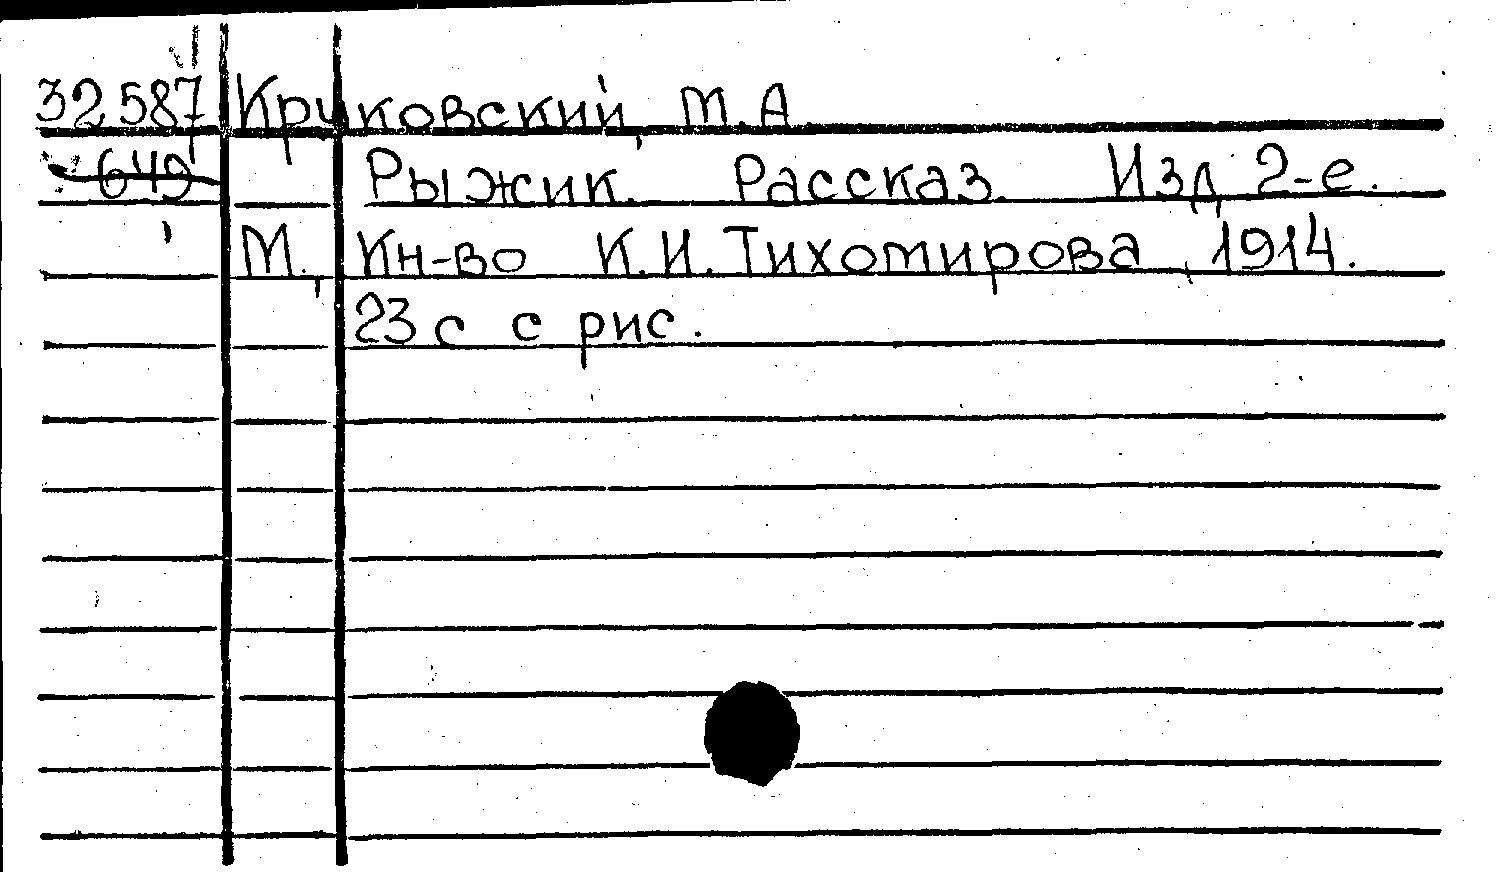 32587 Круковский, М.А.
649 Рыжик. Рассказ. Изд 2-е.
М., Кн-во К.И. Тихомирова, 1914.
23 с с рис.